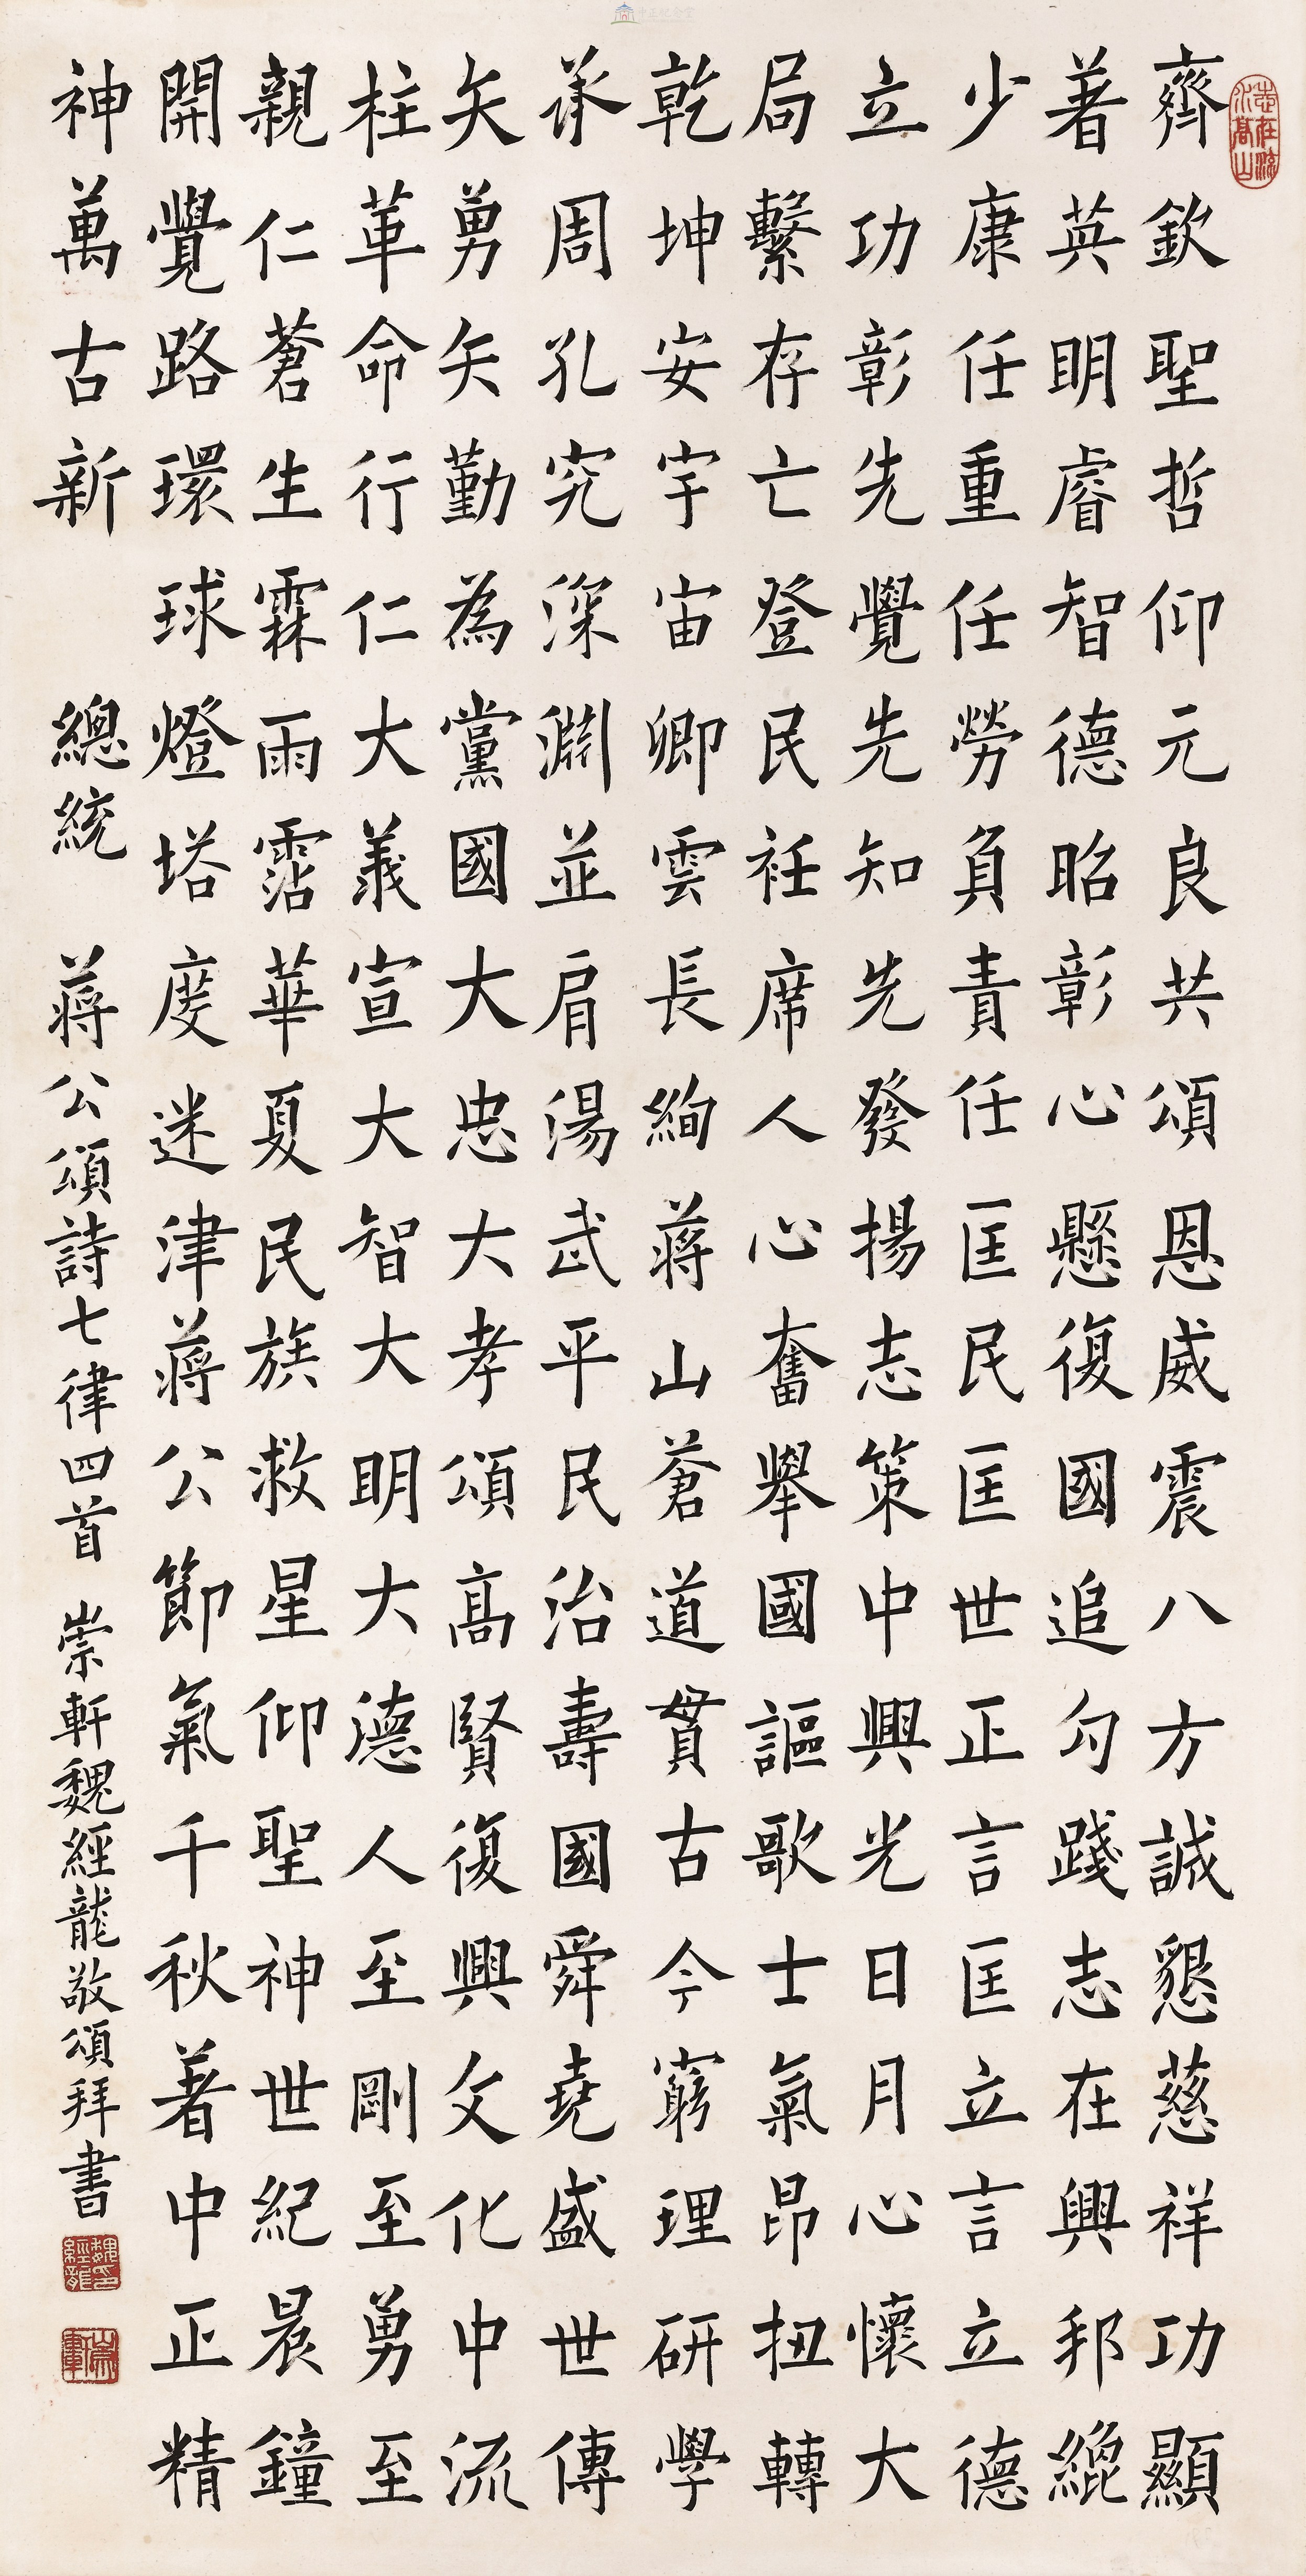 中正紀念堂
志在流水高山
齊欽聖哲仰元良共頌恩威震八方誠懇慈祥功顯
著英明睿智德昭彰心懸復國追勾踐志在興邦緄
少康任重任勞負責任匡民匡世正言匡立言立德
立功彰先覺先知先發揚志策中興光日月心懷大
局繫存亡登民衽席人心奮舉國謳歌士氣昂扭轉
乾坤安宇宙卿雲長絢蔣山蒼道貫古今窮理研學
承周孔究深淵並肩湯武平民治壽國舜堯盛世傳
矢勇矢勤為黨國大忠大孝頌高賢復興文化中流
柱革命行仁大義宣大智大明大德人至剛至勇至
親仁蒼生霖雨霑華夏民族救星仰聖神世紀晨鐘
開覺路環球燈塔度迷津蔣公節氣千秋著中正精
神萬古新 總統 蔣公頌詩七律四首 崇軒魏經龍敬頌拜書
魏經龍印
崇軒